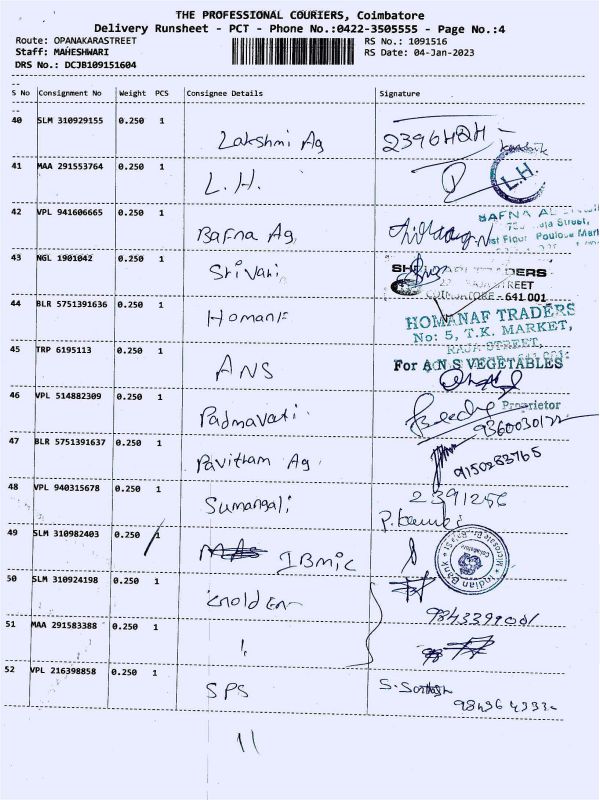 THE PROFESSIONAL COURIERS, Coimbatore
Delivery Runsheet - PCT - Phone No.:0422-3505555 - Page No.:4
Route: OPANAKARASTREET RS No.: 1091516
Staff: MAHESHWARI RS Date: 04-Jan-2023
DRS No.: DCJB109151604
S No Consignment No Weight PCS Consignee Details Signature
40 SLM 310929155 0.250 1 Lakshmi Ag
41 MAA 291553764 0.250 1 L.H. L.H.
42 VPL 941606665 0.250 1 Bafna Ag
BAFNA
Raja Street,
1st Floor Poulose
43 NGL 1901042 0.250 1 Srivari
TRADERS
STREET
COIMBATORE - 641 001
44 BLR 5751391636 0.250 1 Homanf
HOMANAF TRADERS
No: 5, T.K. MARKET,
RAJA STREET,
45 TRP 6195113 0.250 1 ANS For A.N.S VEGETABLES
Proprietor
46 VPL 514882309 0.250 1 Padmavati
47 BLR 5751391637 0.250 1 Pavitham Ag 9150283765
48 VPL 940315678 0.250 1 Sumangali 2391256
49 SLM 310982403 0.250 1 IBmic
Indian Bank
50 SLM 310924198 0.250 1
51 MAA 291583388 0.250 1
52 VPL 216398858 0.250 1 SPS
11